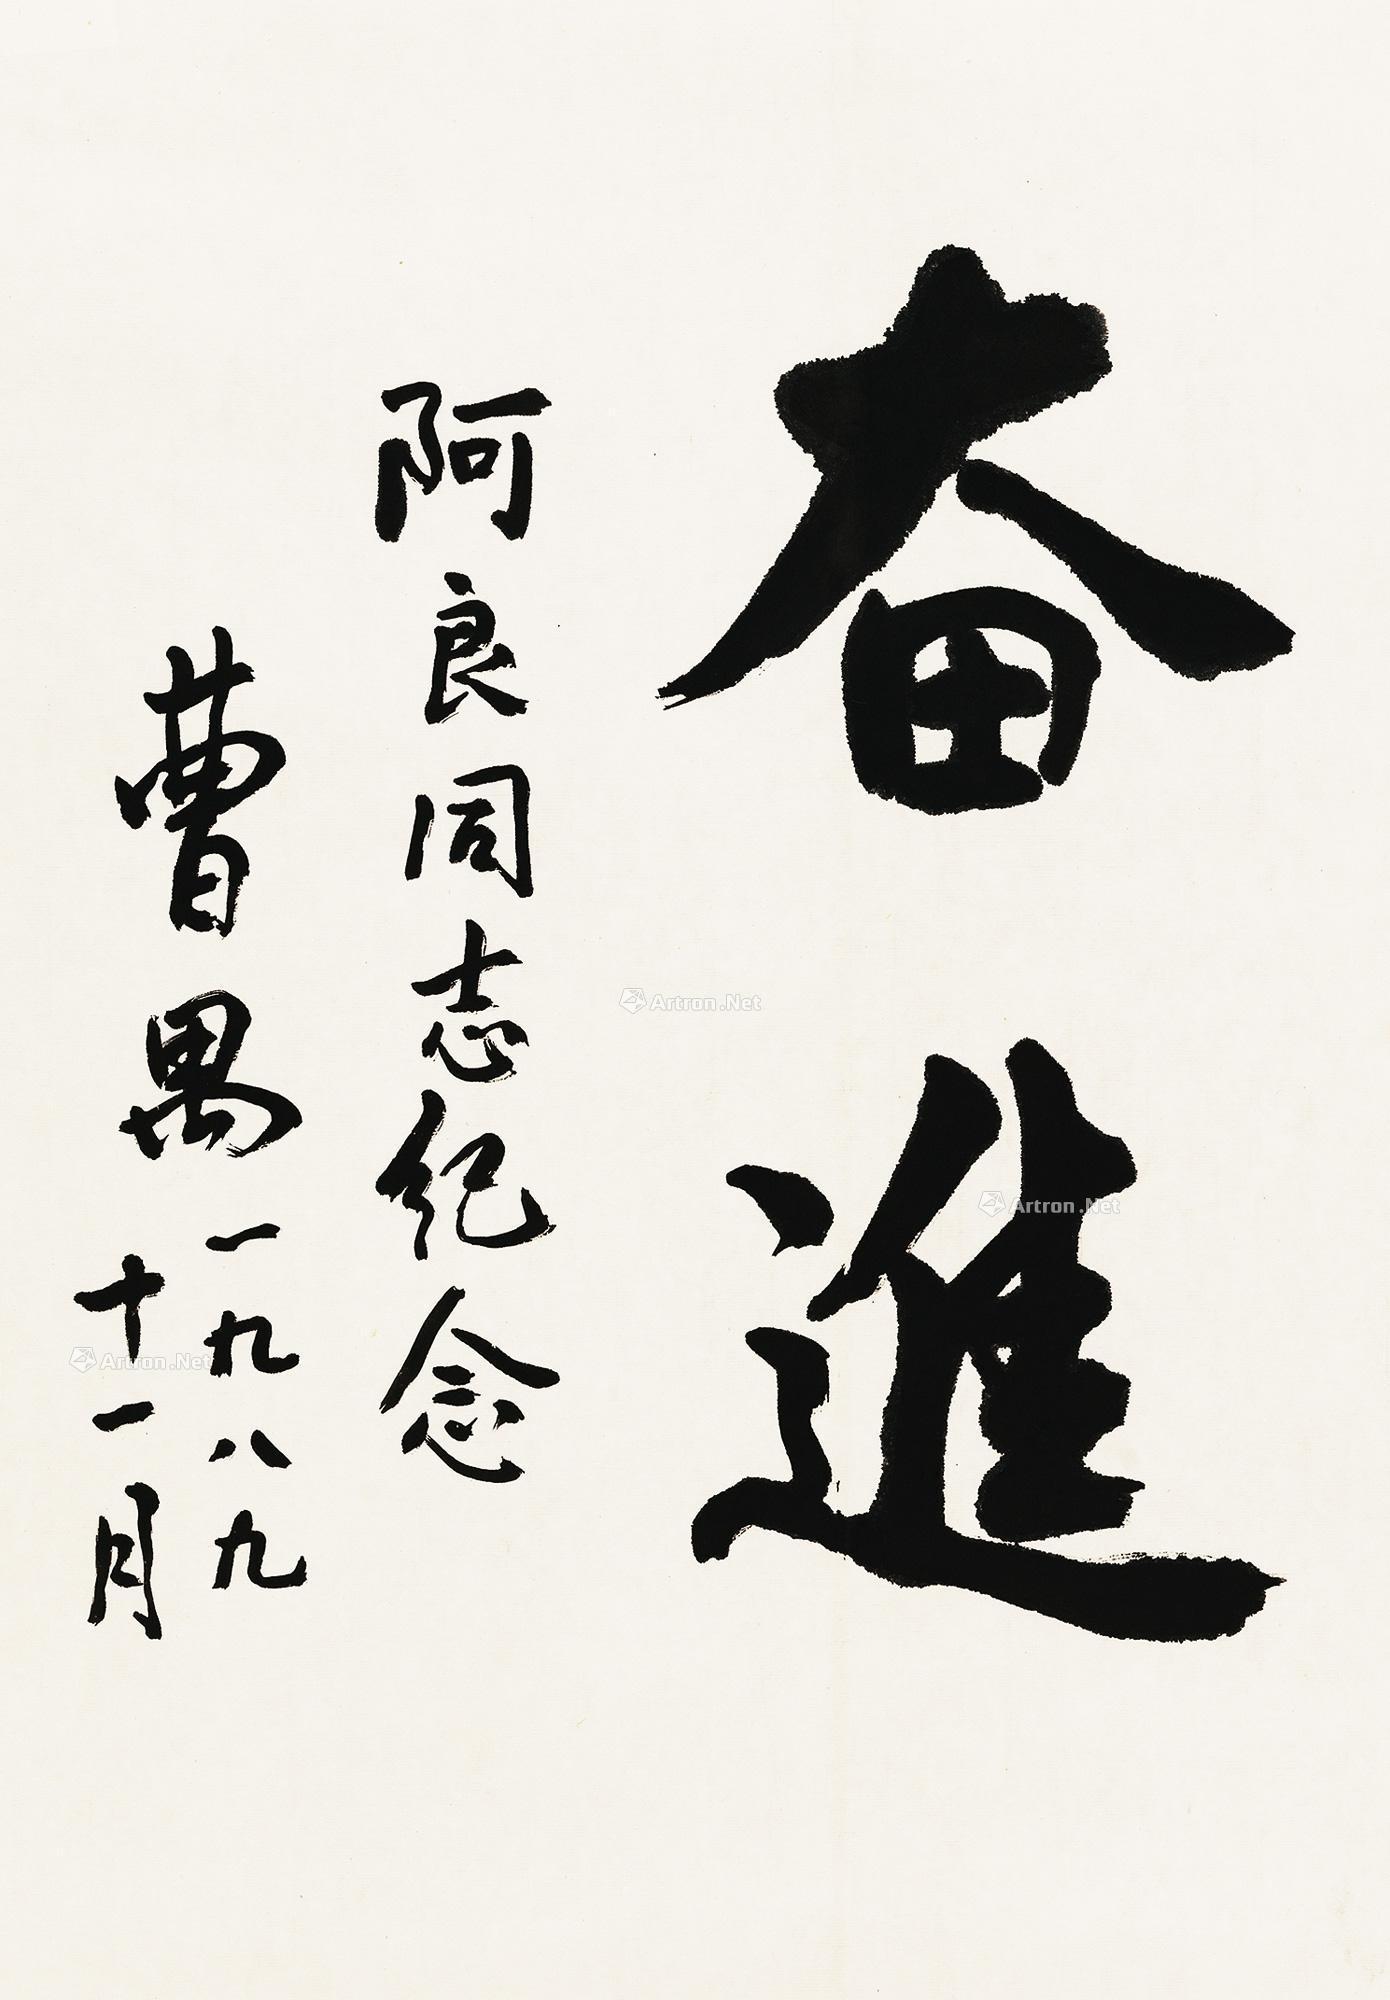 奋進
阿良同志纪念
曹禺 一九八九
十一月
Artron.Net
Artron.Net
Artron.Net